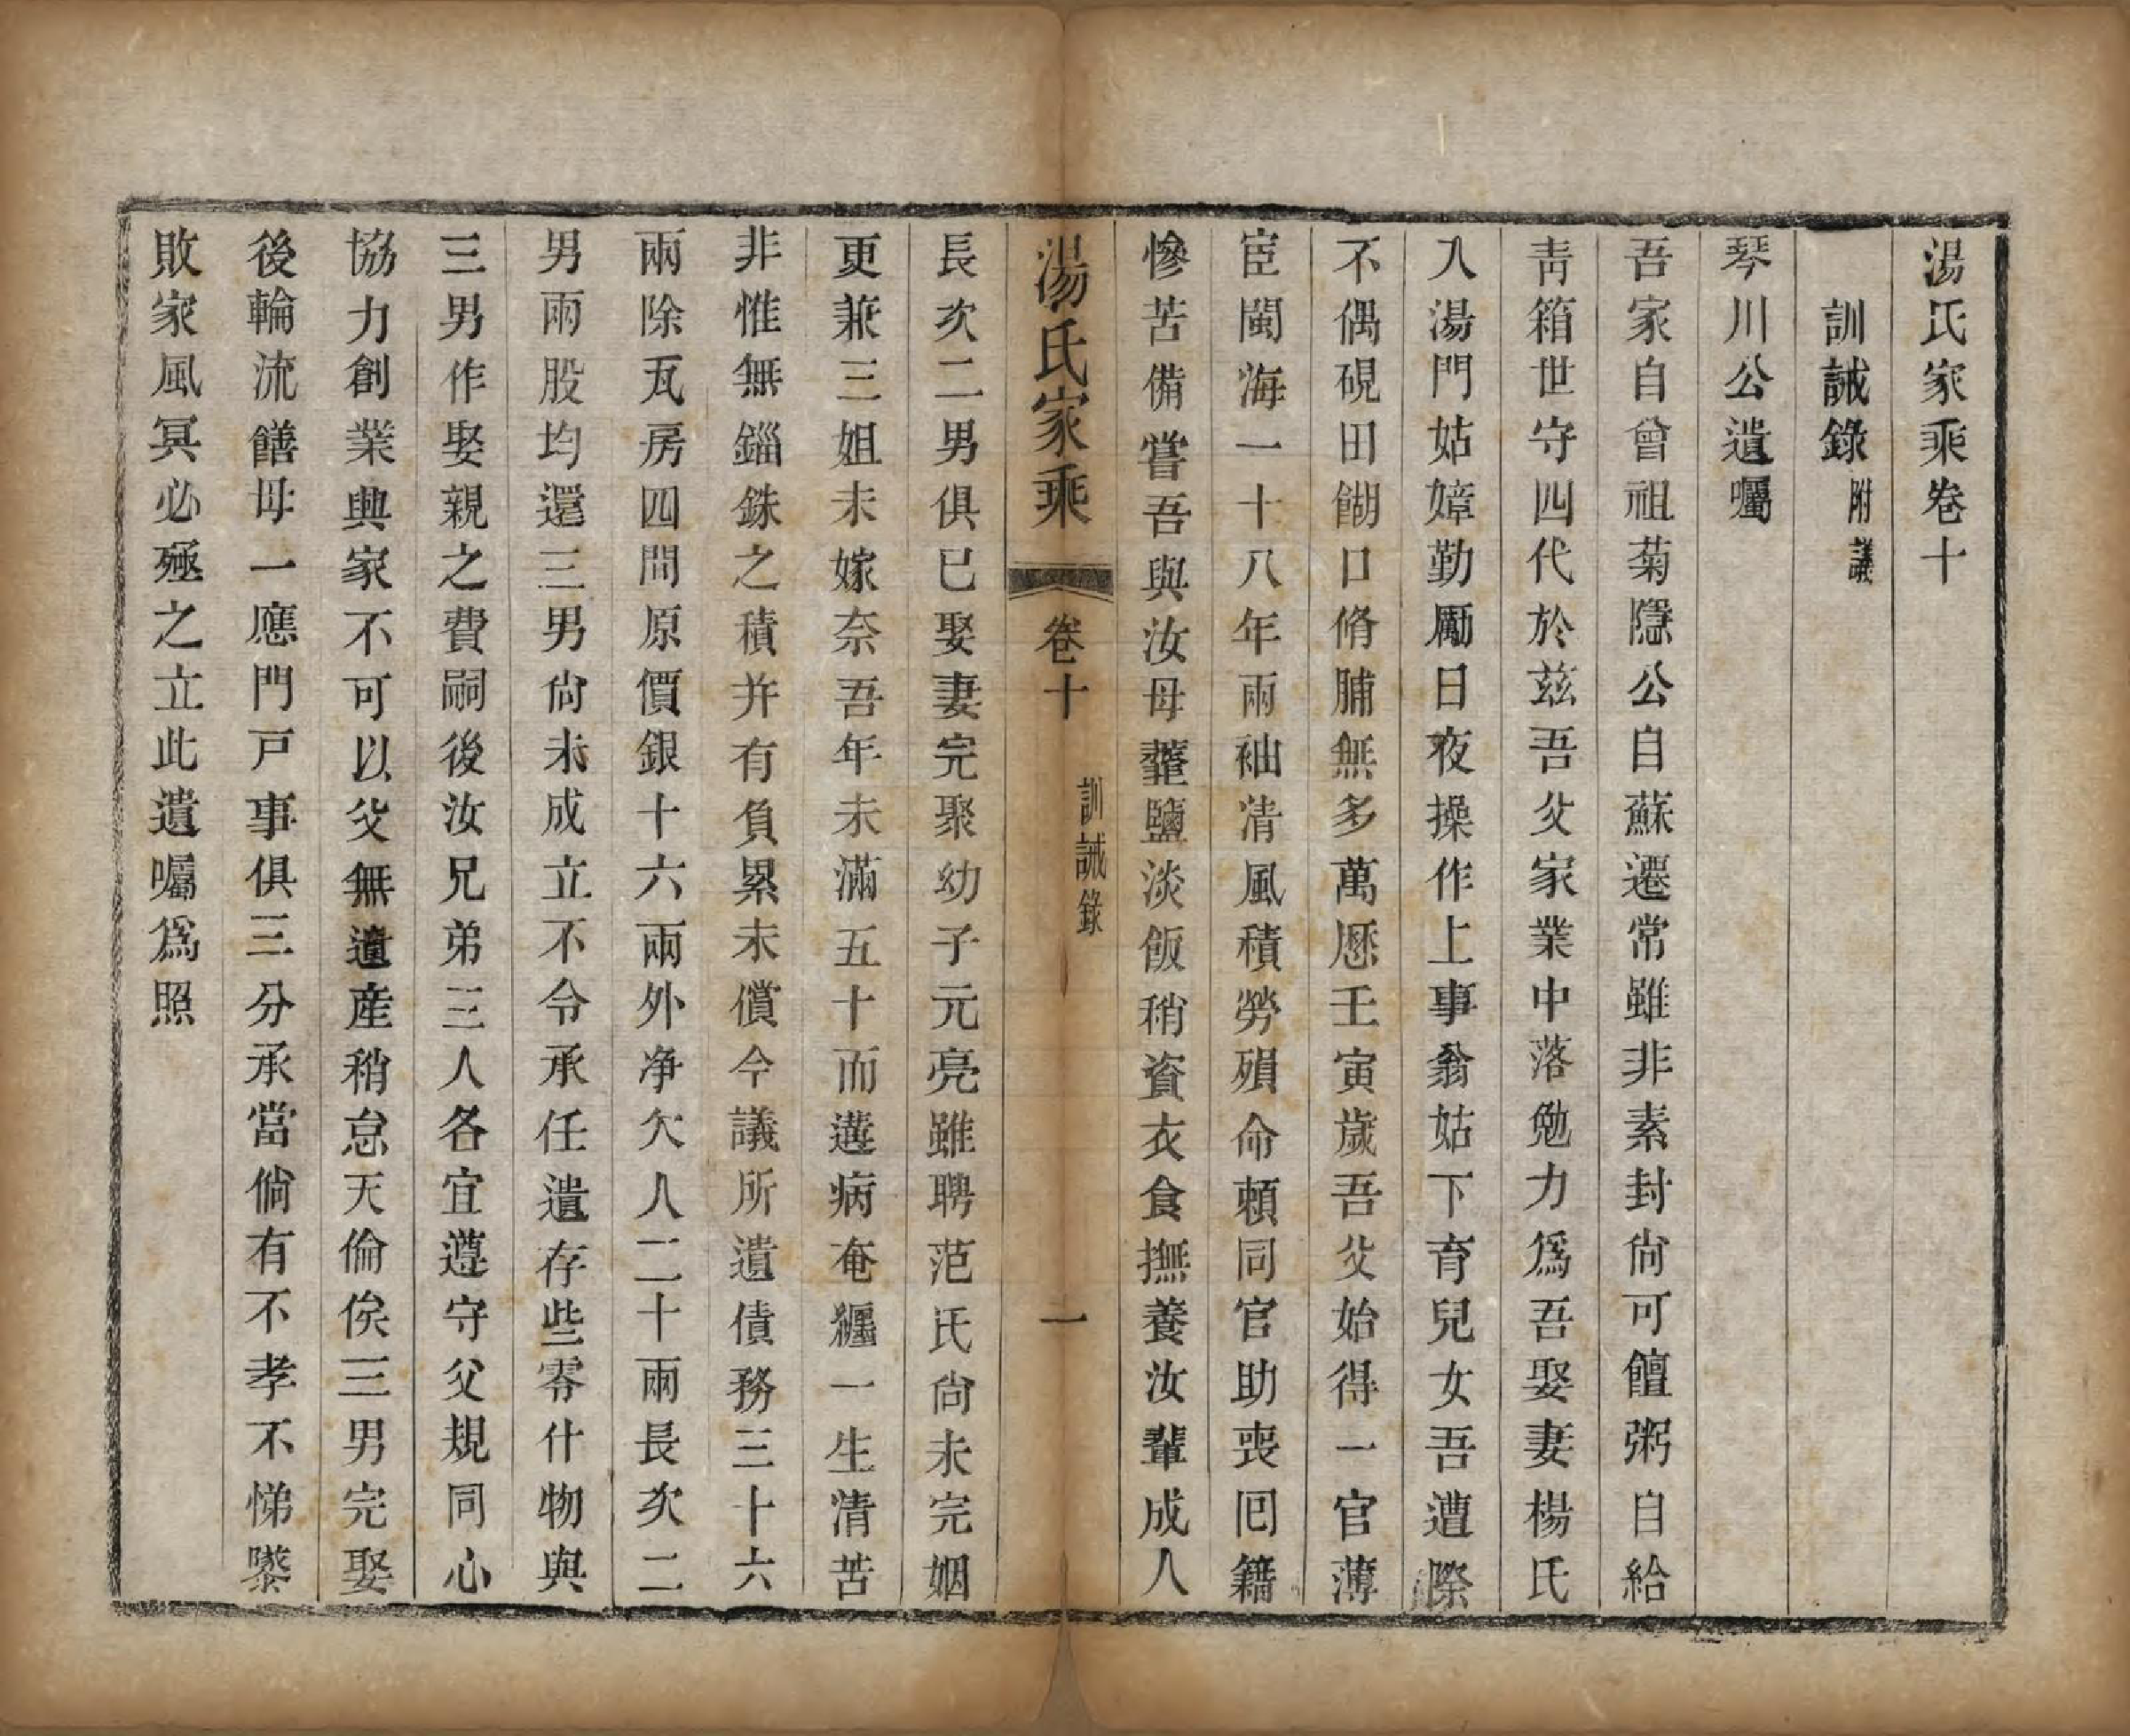 湯氏家乘卷十
訓誡錄附議
琴川公遺囑
吾家自曾祖菊隱公自蘇遷常雖非素封尙可饘粥自給
靑箱世守四代於茲吾父家業中落勉力爲吾娶妻楊氏
入湯門姑嫜勤勵日夜操作上事翁姑下育兒女吾遭際
不偶硯田餬口脩脯無多萬厯壬寅歲吾父始得一官薄
宦閩海一十八年兩袖清風積勞殞命賴同官助喪囘籍
慘苦備嘗吾與汝母虀鹽淡飯稍資衣食撫養汝輩成人
湯氏家乘
卷十
訓誡錄
一
長次二男俱已娶妻完聚幼子元亮雖聘范氏尙未完姻
更兼三姐未嫁奈吾年未滿五十而遘病奄纏一生清苦
非惟無錙銖之積并有負累未償今議所遺債務三十六
兩除瓦房四間原價銀十六兩外净欠人二十兩長次二
男兩股均還三男尙未成立不令承任遺存些零什物與
三男作娶親之費嗣後汝兄弟三人各宜遵守父規同心
協力創業興家不可以父無遺産稍怠天倫俟三男完娶
後輪流饍母一應門戸事俱三分承當倘有不孝不悌隳
敗家風冥必殛之立此遺囑爲照